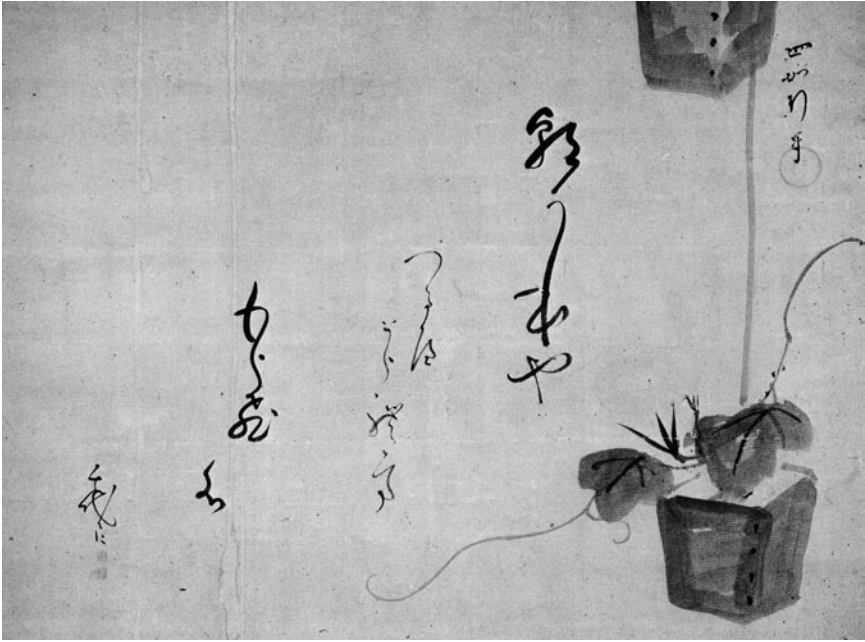 朝かほや
つるへ
とられて
もらひ
水
千代尼